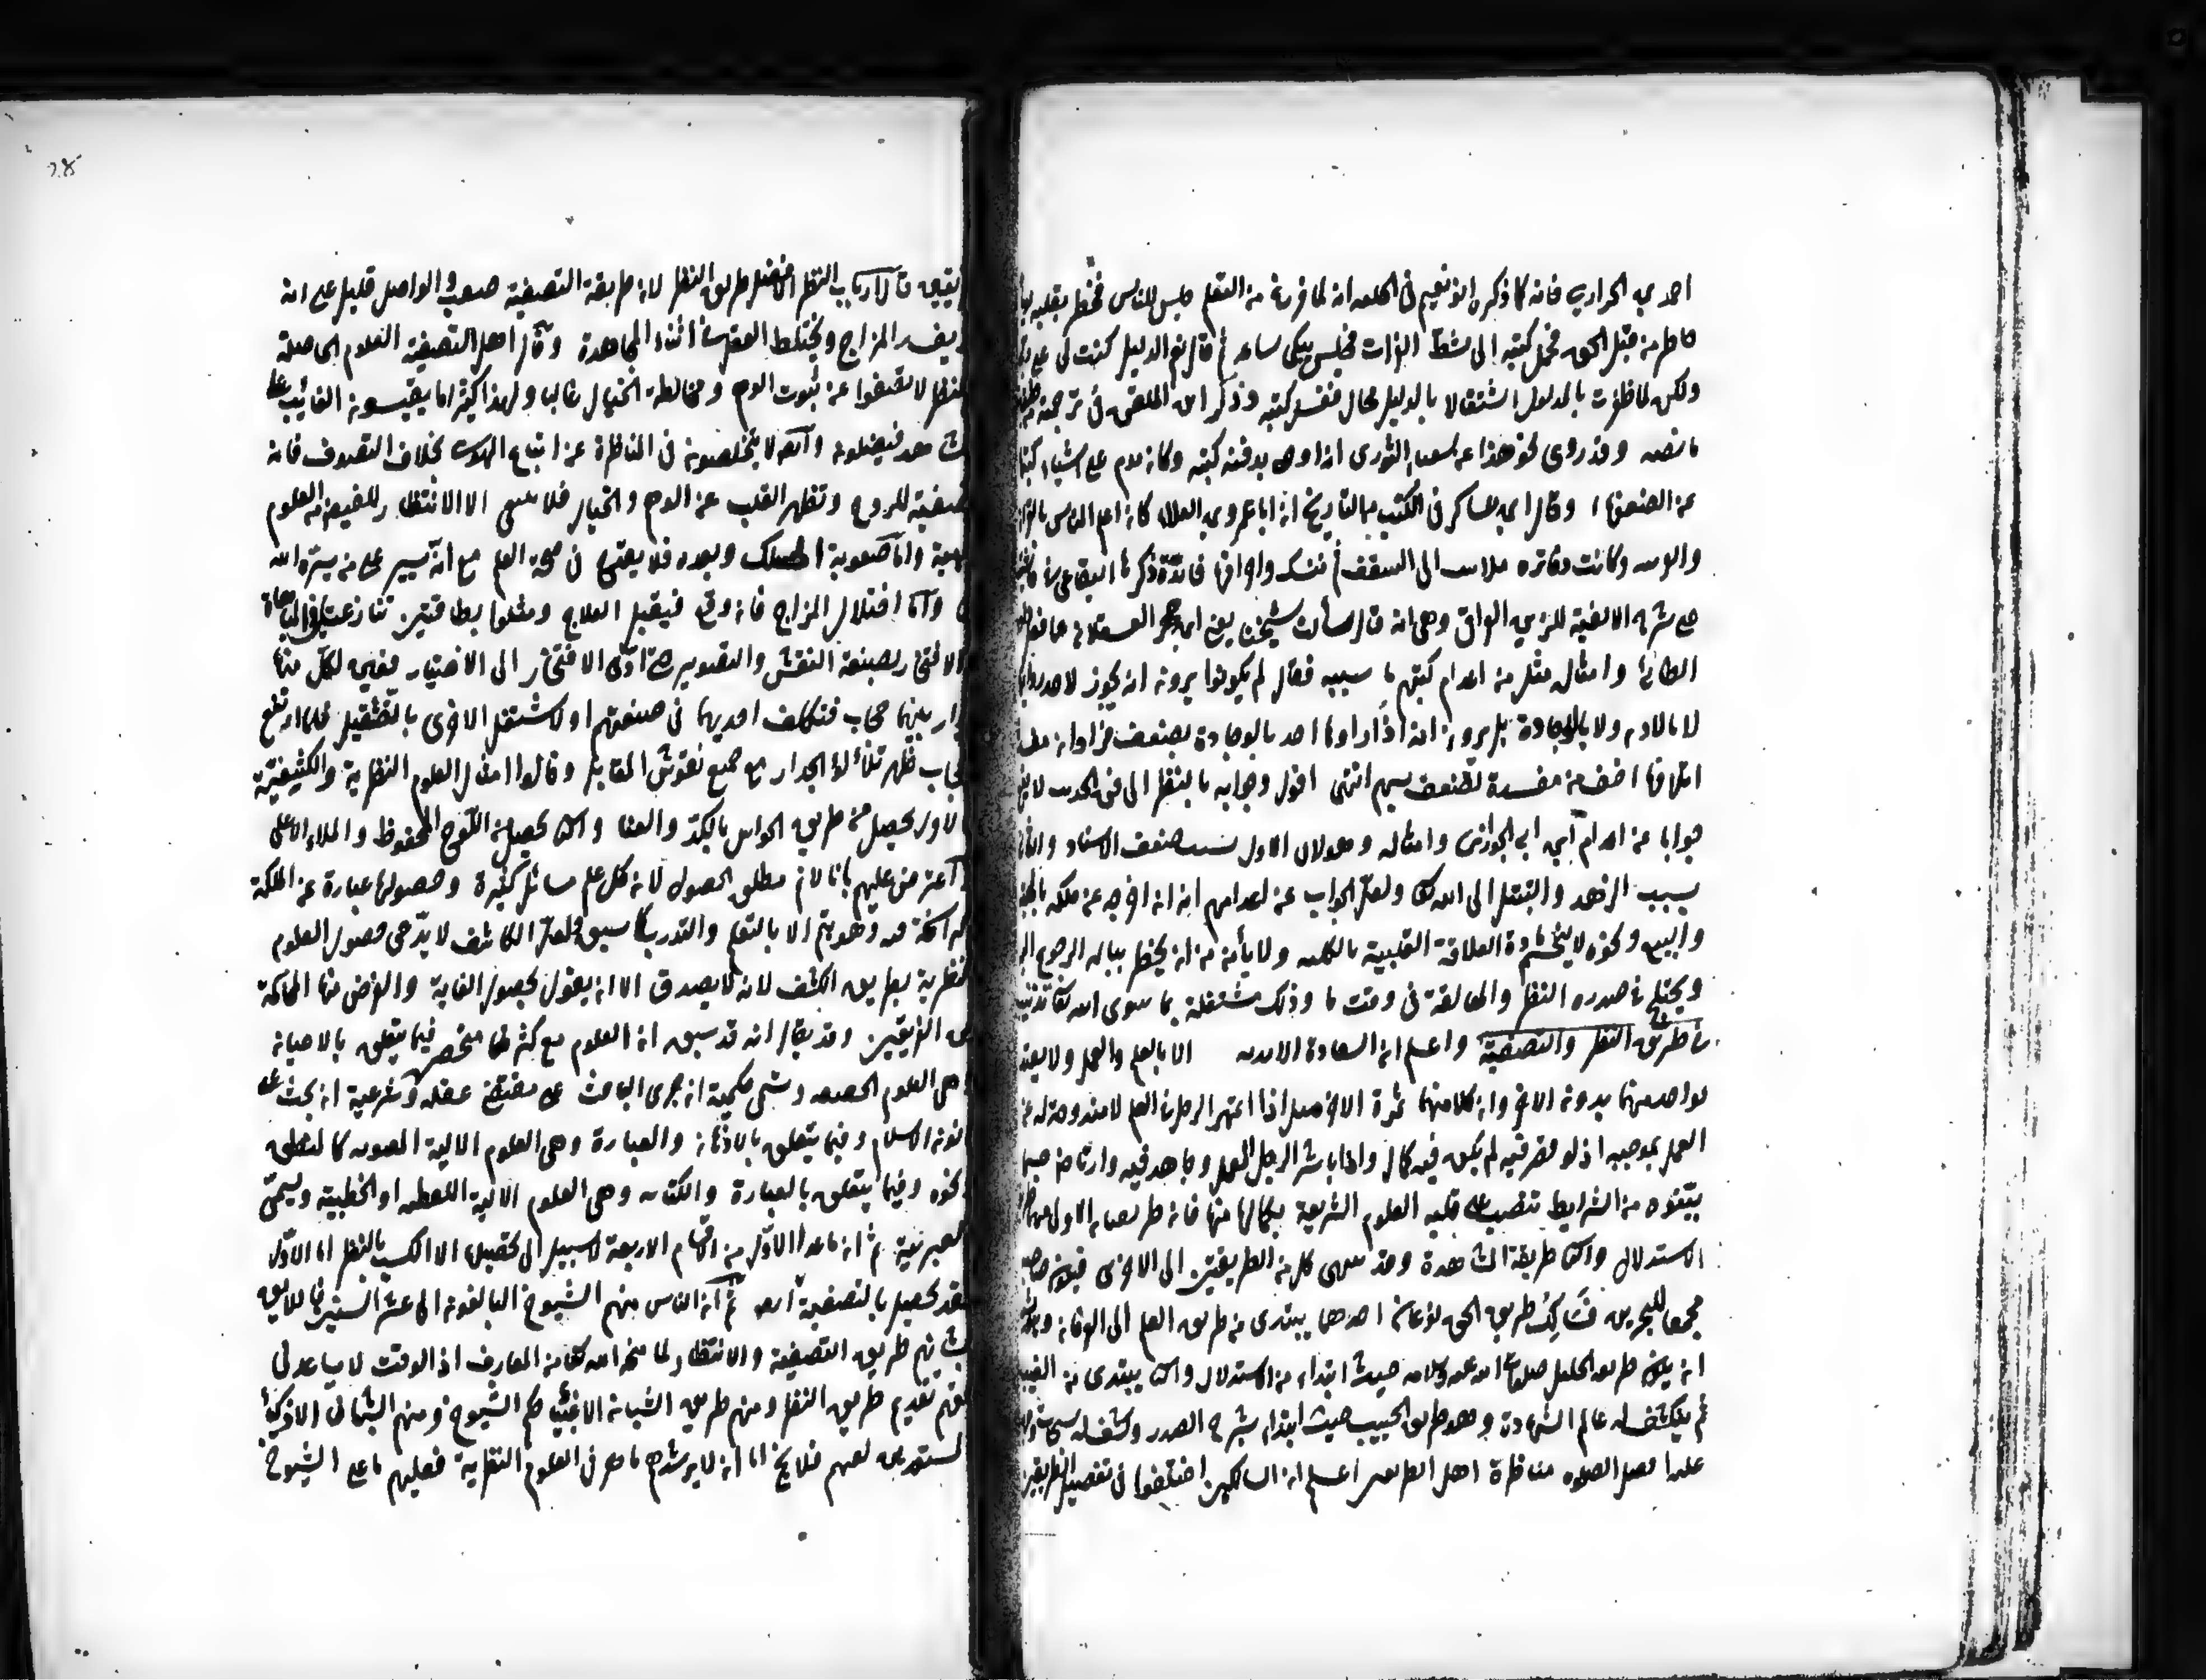 احمد بن ابي الحواري فانه كما ذكره ابو نعيم في الحلية انه لما فرغ من التعلم جلس للناس فخطر بقلبه يوما
خاطر من قبل الحق فحمل كتبه الى شط الفرات فجلس يبكي ساعة ثم قال نعم الدليل كنت لي على ربي
ولكن لما ظفرت بالمدلول اشتغالا بالدليل محال فغسل كتبه وذكر ابن الملقن في ترجمة من طبقات
ما نصه وقد روي نحو هذا عن سفيان الثوري انه اوصى بدفن كتبه وكان ندم على اشياء كتبها
عن الضعفاء وقال ابن عساكر في الكتب من التاريخ ان ابا عمرو بن العلاء كان اعلم الناس بالقرآن
والعربية وكانت دفاتره ملأت الى السقف ثم تنسك واحرقها فائدة ذكرها البقاعي في حاشيته
على شرح الالفية للزين العراقي وهي انه قال سألت شيخنا يعني ابن حجر العسقلاني عما فعل داود
الطائي وامثاله من اعدام كتبهم ما سببه فقال لم يكونوا يرون انه يجوز لاحد روايتها
لا بالاجازة ولا بالوجادة بل يرون انه اذا رواها احد بالوجادة يضعف فرأوا ان مفسدة
اتلافها اخف من مفسدة تضعيف بسببهم انتهى اقول وجوابه بالنظر الى فن الحديث لا يقع
جوابا عن اعدام ابن ابي الحواري وامثاله وهو لان الاول بسبب ضعف الاسناد والثاني
بسبب الزهد والتبتل الى الله تعالى ولعل الجواب عن اعدامهم انه ان اخرجه عن ملكه بالهبة
والبيع ونحوه لا ينحسم مادة العلاقة القلبية بالكلية ولا يأمن من ان يخطر بباله الرجوع اليه
ويختلج في صدره النظر والمطالعة في وقت ما وذلك مشغلة بما سوى الله تعالى تذنيب
في طريق النظر والتصفية واعلم ان السعادة الابدية الا بالعلم والعمل ولا يعتد
بواحد منهما بدون الاخر وان كلا منهما ثمرة الاخر مثلا اذا تمهر الرجل في العلم لا مندوحة له عن
العمل بموجبه اذ لو قصر فيه لم يكن فيه كمال واذا باشر الرجل العمل وجاهد فيه وارتاض حسبما
بينوه من الشرايط تنصب على قلبه العلوم الشريعة بكمالها فهاتان طريقتان الاولى منهما طريقة
الاستدلال والثانية طريقة المشاهدة وقد ينتهي كل من الطريقتين الى الاخرى فيكون صاحبه
مجمعا للبحرين فسالك طريق الحق نوعان احدهما يبتدي من طريق العلم الى العرفان وهو يشبه
ان يكون طريقة الخليل صلوات الله عليه وسلامه حيث ابتداء من الاستدلال والثاني يبتدي من الغيب
ثم ينكشف له عالم الشهادة وهو طريق الحبيب حيث ابتداء بشرح الصدر وكشف له سبحات وجهه
عليه افضل الصلوة مناظرة اهل الطريقين اعلم ان السالكين اختلفوا في تفضيل الطريقين
قال ارباب النظر الافضل طريق النظر لان طريقة التصفية صعب والواصل قليل على انه
يفسد المزاج ويختلط العقل في اثناء المجاهدة وقال اهل التصفية العلوم الحاصلة
بالنظر لا تصفوا عن ثبوت الوهم ومخالطة الخيال غالبا ولهذا كثيرا ما يقيسون الغائب على
الشاهد فيضلون وايضا لا يتخلصون في المناظرة عن اتباع الهوى بخلاف التصوف فانه
تصفية للروح وتطهر القلب عن الوهم والخيال فلا يبقى الا الانتظار للفيض من العلوم
الالهية واما صعوبة المسلك وبعده فلا يقدح في صحة العلم مع انه يسير على من يسره الله
واما اختلال المزاج فان وقع فيقبل العلاج ومثلوا بطائفتين تنازعتا في المباهاة
والافتخار بصنعة النقش والتصوير حتى ادى الافتخار الى الاختبار فعين لكل منهما
جدار بينهما حجاب فتكلف احديهما في صنعتهم او لا اشتغل الاخرى بالتصقيل فلما ارتفع
الحجاب ظهر تلألؤ الجدار مع جميع نقوش المقابل وقالوا امثال العلوم النظرية والكشفية
فالاول يحصل من طريق الحواس بالكد والعنا والثاني يحصل من اللوح المحفوظ والملاء الاعلى
اعترض عليهم بانا لا نم مطلق الحصول لان كل علم مسائل كثيرة وحصولها عبارة عن الملكة
الراسخة فيه وهو يتم الا بالتعلم والتدرب كما سبق ولعل المكاشف لا يدعي حصول العلوم
النظرية بطريق الكشف لانه لا يصدق الا ان يقول بحصول الغاية والغرض منها المحاكمة
بين الفريقين وقد يقال انه قد سبق ان العلوم مع كثرتها منحصر فيما يتعلق بالاعيان
وهي العلوم الحقيقية وتسمى حكمية ان جرى الباحث على مقتضى عقله وشرعية ان بحث على
قانون الاسلام وفيما يتعلق بالاذهان والعبارة وهي العلوم الالية المعنوية كالمنطق
ونحوه وفيما يتعلق بالعبارة والكتابة وهي العلوم الالية اللفظية او الخطية وتسمى
بالعربية ثم ان ما عدا الاول من الاقسام الاربعة لا سبيل الى تحصيلها الا الكسب بالنظر اما الاول
فقد يحصل بالتصفية ايضا ثم ان الناس منهم الشيوخ البالغون الى عشر الستين فاللايق
بشانهم طريق التصفية والانتظار لما منحه الله تعالى من المعارف اذ الوقت لا يساعد في
حقهم تقديم طريق النظر ومنهم طريق الشبان الاغبياء فحكمهم حكم الشيوخ ومنهم الشبان الاذكياء
المستعدين لفهم فلا يخ اما ان لا يرشدهم ماهر في العلوم النظرية فعليهم ما على الشيوخ